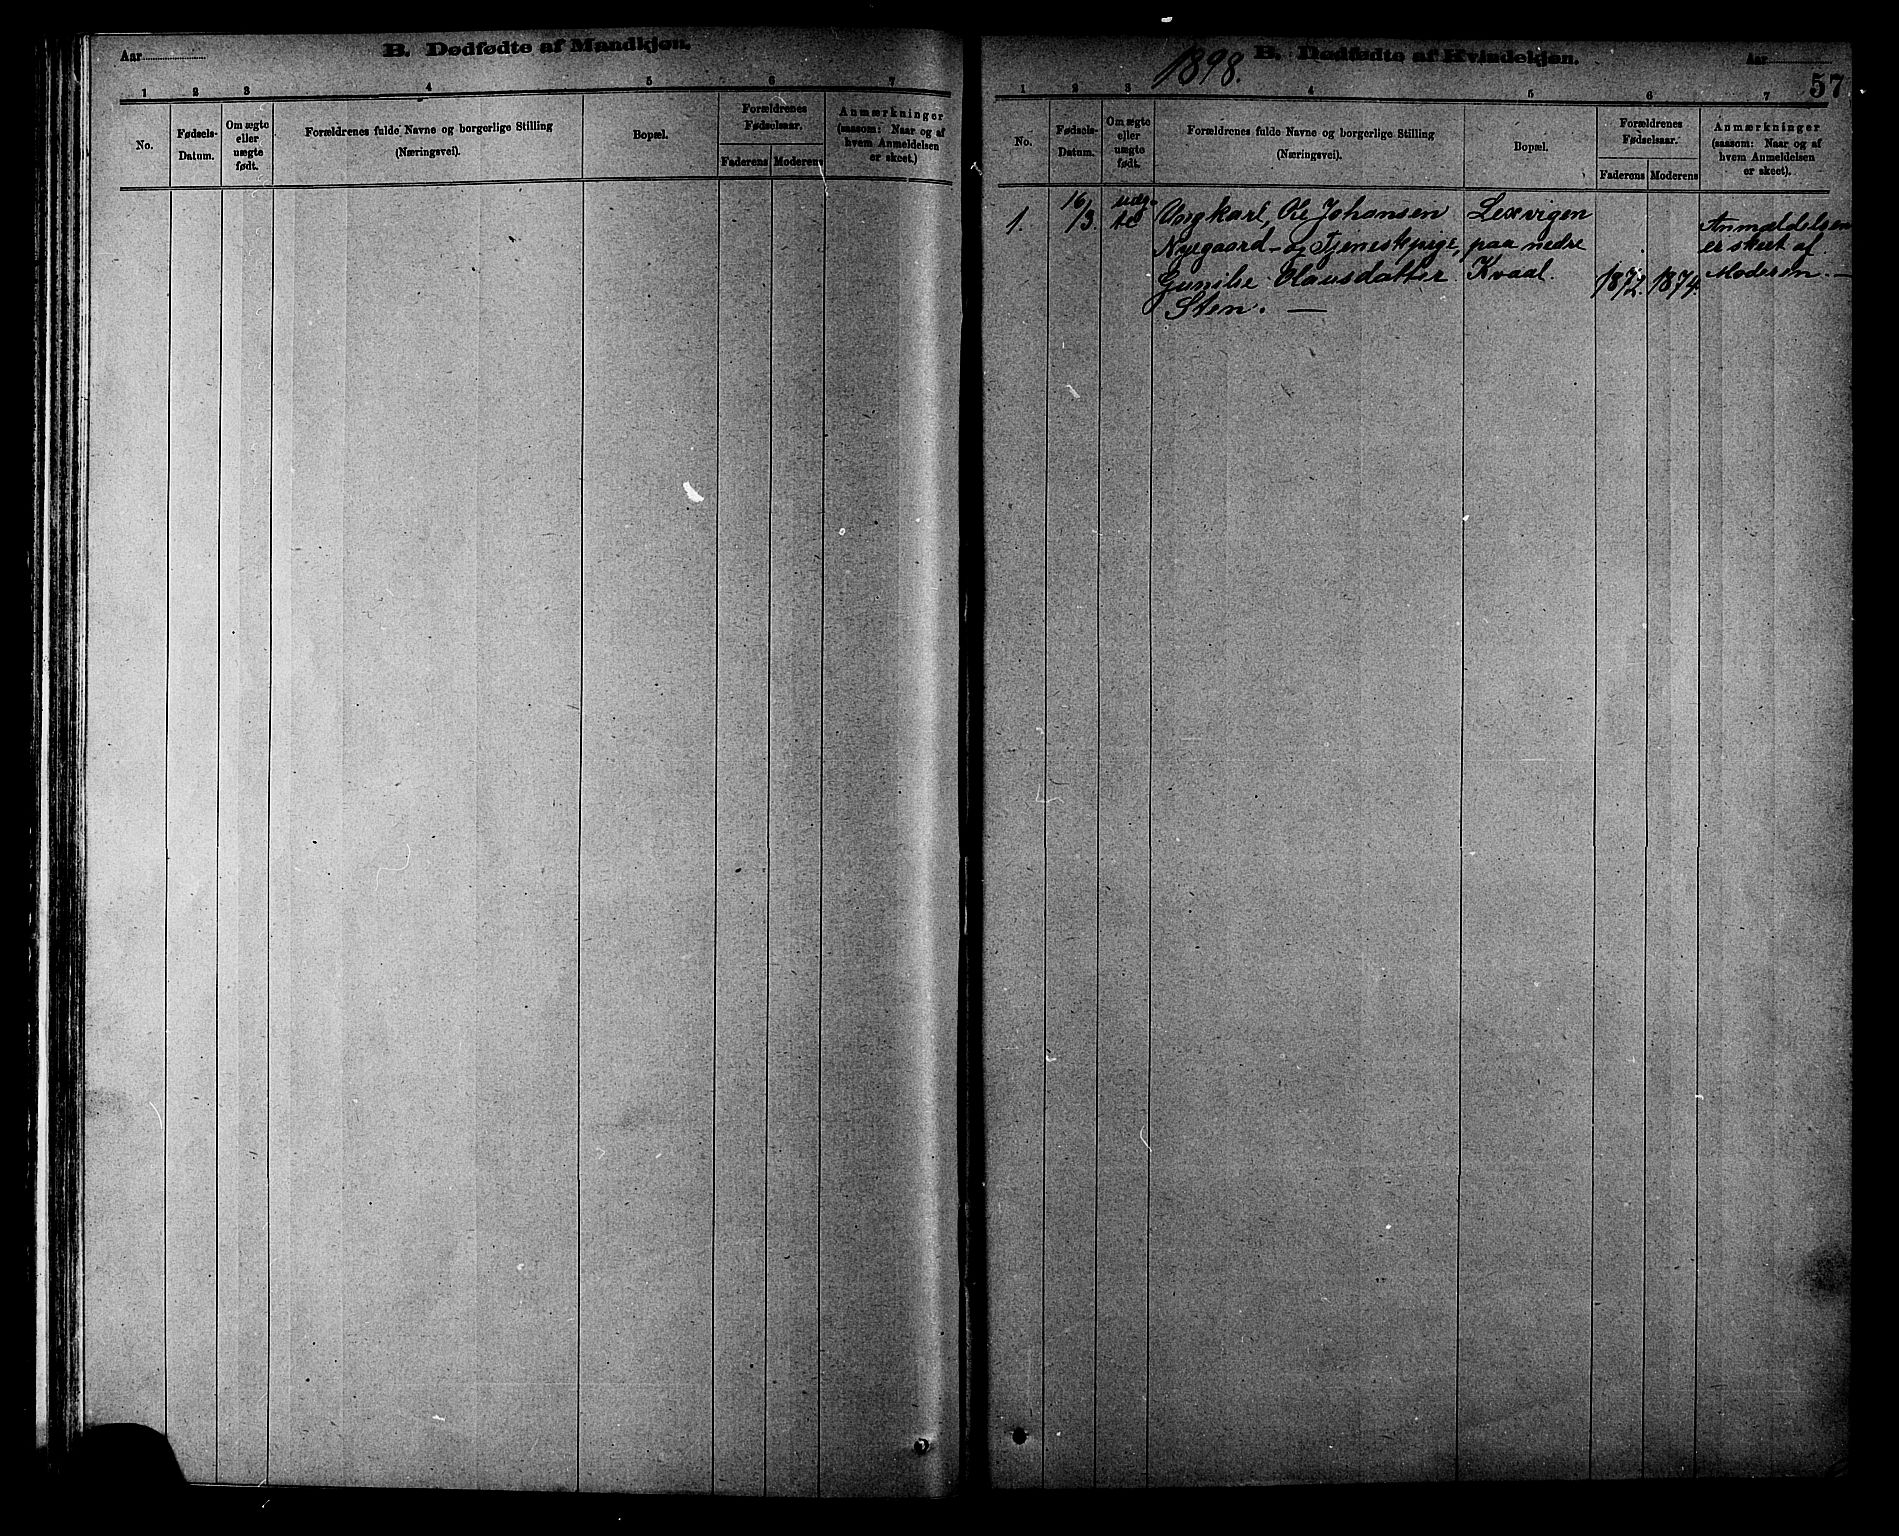 Aar
B. Dødfødte af Mandkjøn.
1 2 3 4 5 6 7
No.
Fødsels-
Datum.
Om ægte
eller
uægte
født.
Forældrenes fulde Navne og borgerlige Stilling
(Næringsvei).
Bopæl.
Forældrenes
Fødselsaar.
Faderens
Moderens
Anmærkninger
(saasom: Naar og af
hvem Anmeldelsen
er skeet.)
1898.
B. Dødfødte af Kvindekjøn.
Aar
57
1 2 3 4 5 6 7
No.
Fødsels-
Datum.
Om ægte
eller
uægte
født.
Forældrenes fulde Navne og borgerlige Stilling
(Næringsvei).
Bopæl.
Forældrenes
Fødselsaar.
Faderens
Moderens
Anmærkninger
(saasom: Naar og af
hvem Anmeldelsen
er skeet).
1.
16/3.
uæg-
te
Ungkarl, Ole Johansen
Nygaard - og Tjenestepige,
Gunilie Olausdatter
Sten. —
Lexvigen
paa nedre
Kvaal.
1872.
1874.
Anmældelsen
er skeet af
Moderen. —